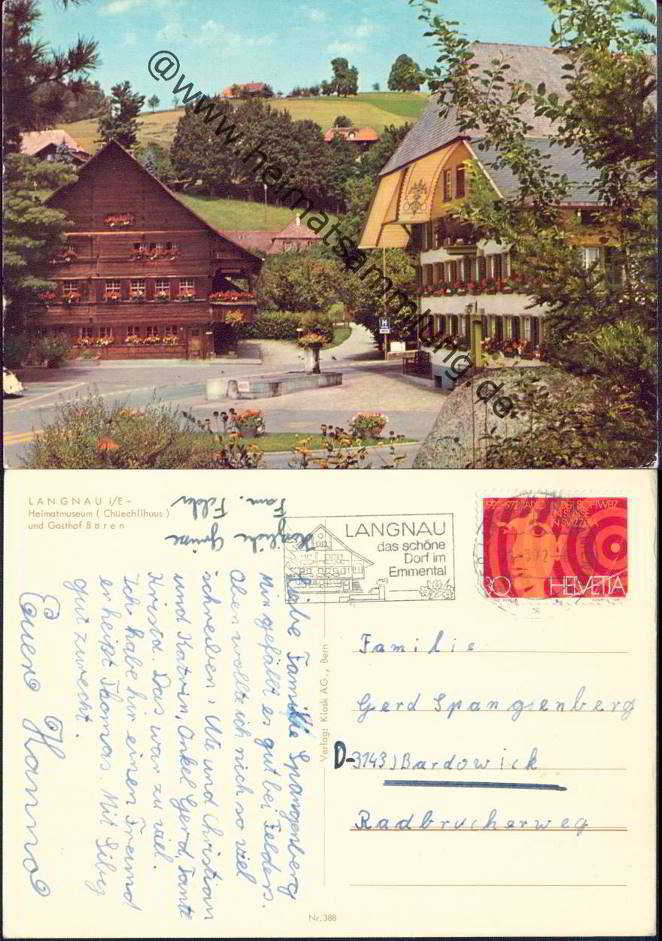 @www.heimatsammlung.de
H
LANGNAU i/E-
Heimatmuseum (Chüechlihuus)
und Gasthof Bären
LANGNAU
das schöne
Dorf im
Emmental
30
HELVETIA
Herzliche Grüsse
Fam. Felder
Liebe Familie Spangenberg
Mir gefällt es gut bei Felders.
Aber wollte ich nich so viel
schreiben, Ute und Christian
und Katrin, Onkel Gerd, Tante
Krista. Das war zu viel.
Ich habe hir einen Freund
er heißt Thomas. Mit
gut zurecht.
Euer Hanno
Verlag: Kiosk AG., Bern
Familie
Gerd Spangenberg
D-3143) Bardowick
Radbrucherweg
Nr. 388